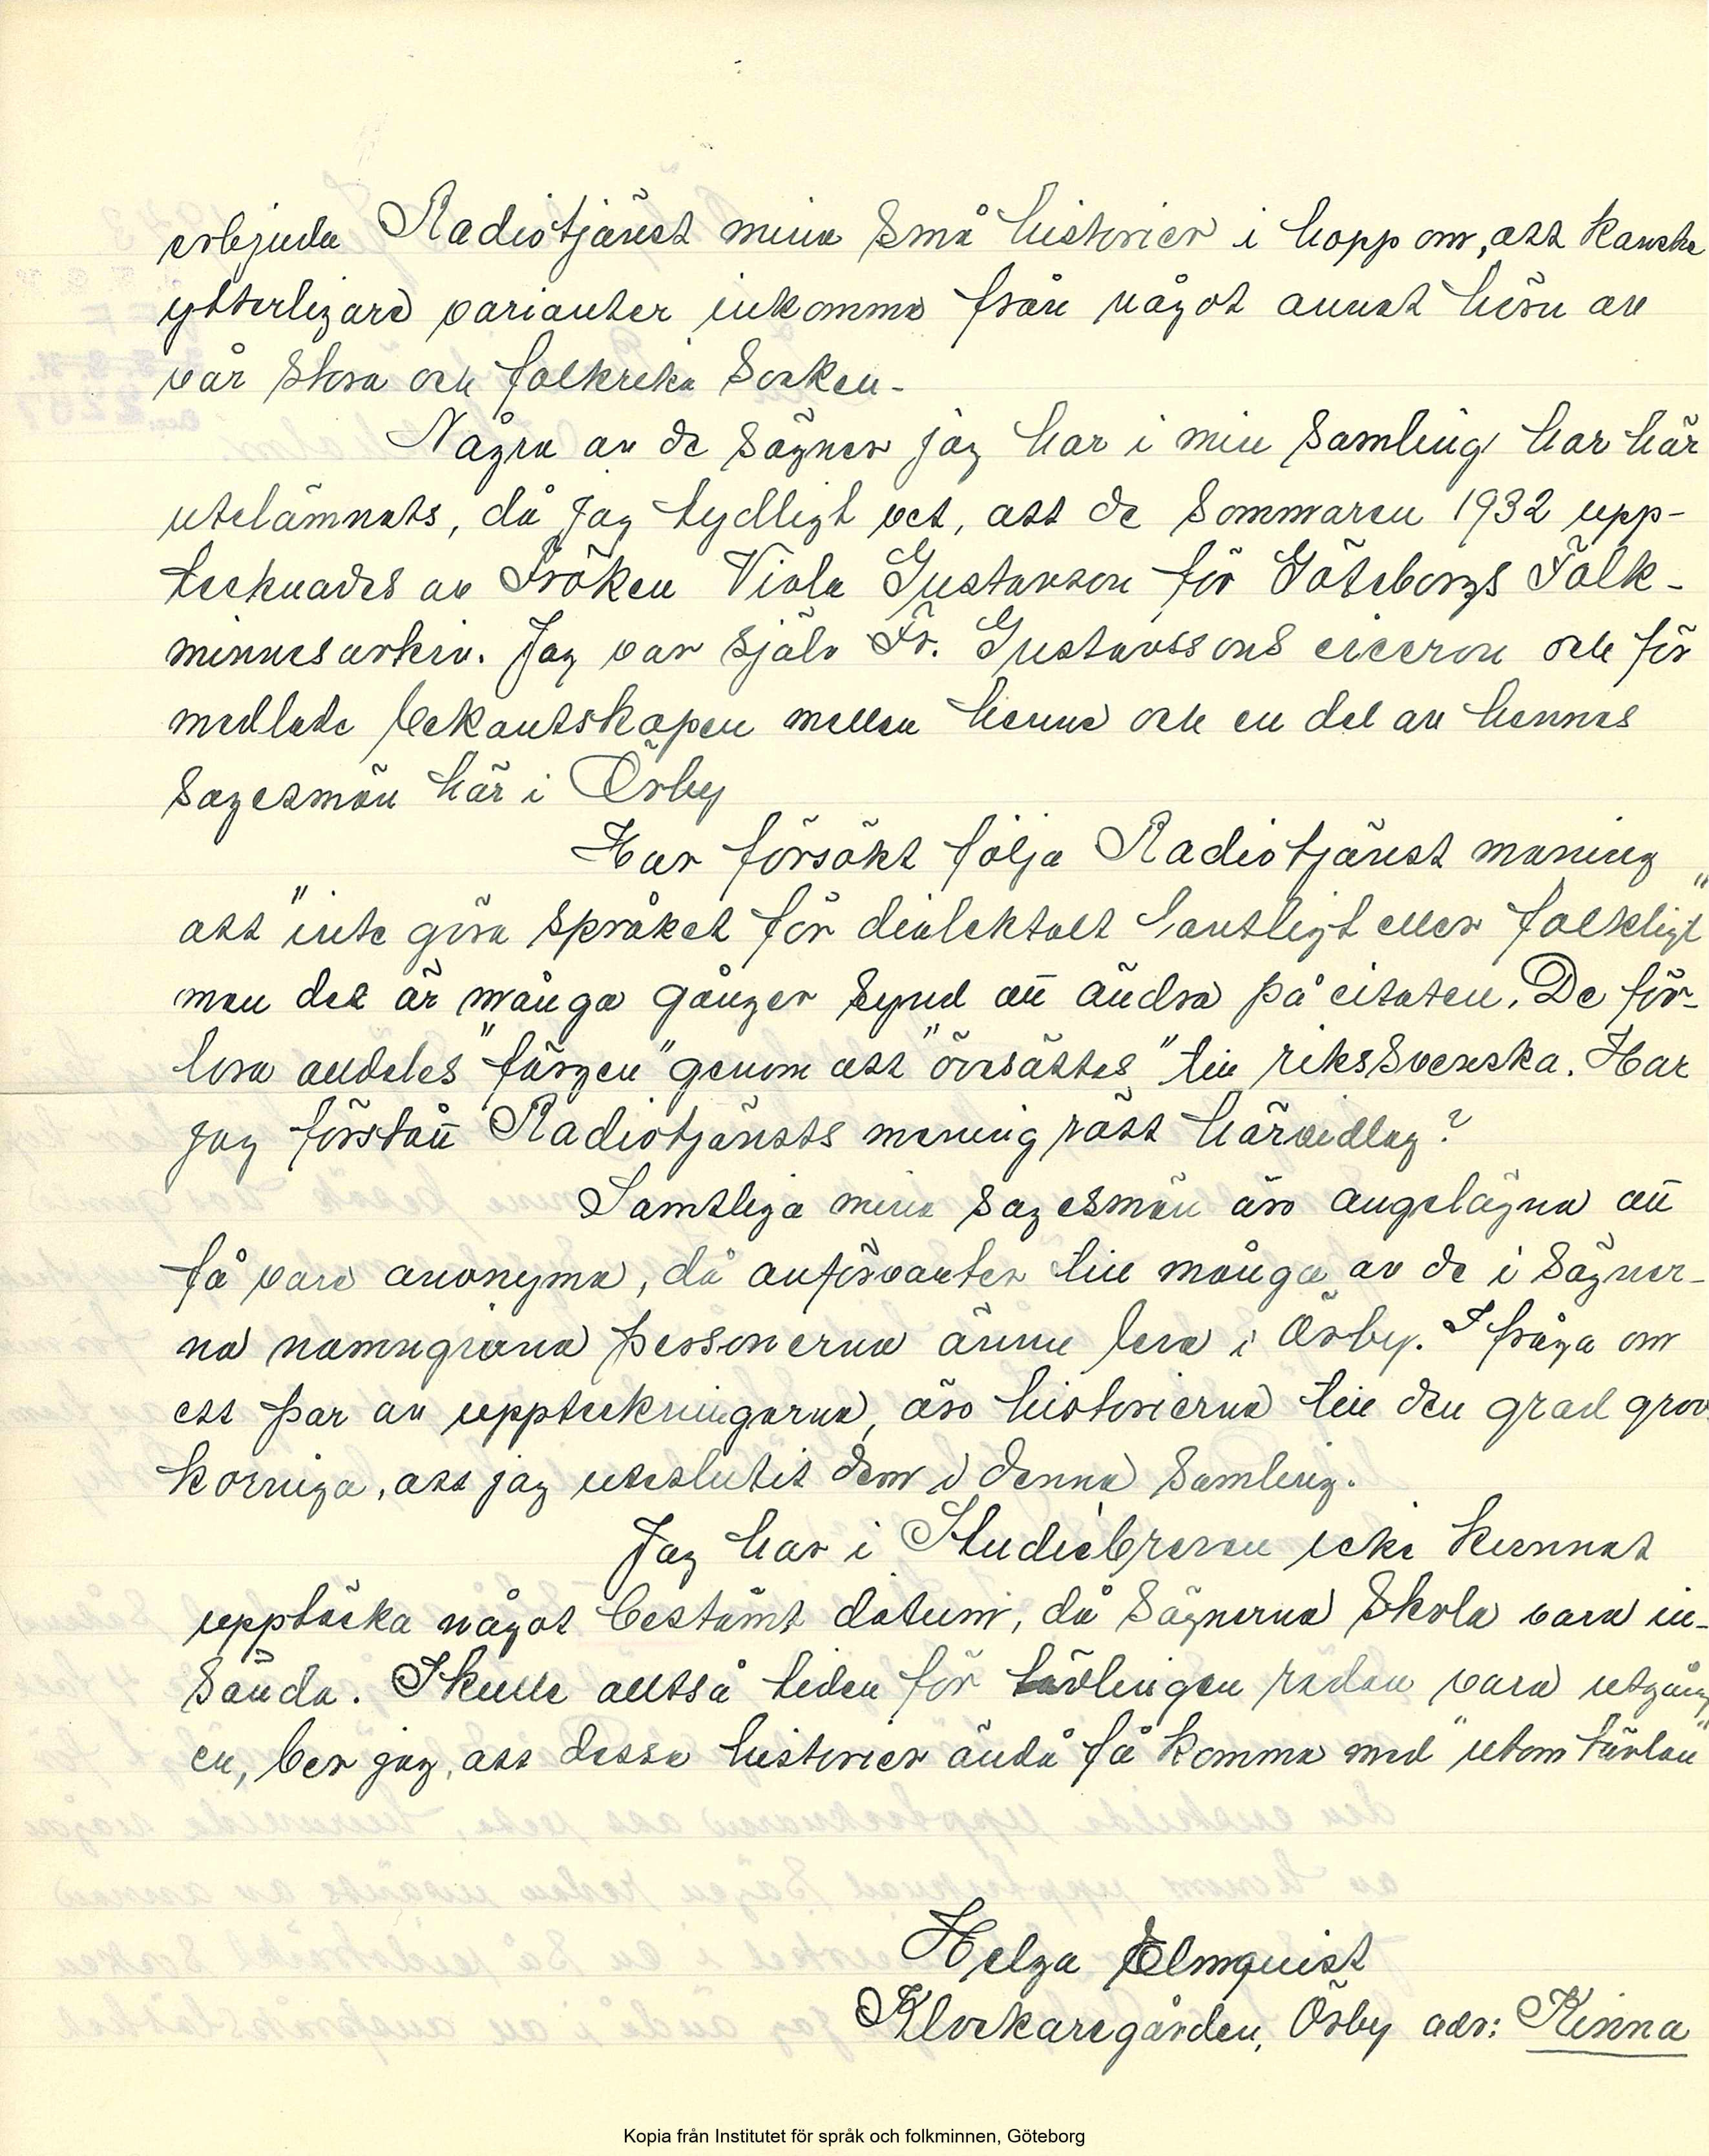 erbjuda Radiotjänst mina små historier i hopp om, att kanske
ytterligare varianter inkomma från något annat hörn av
vår stora och folkrika socken.
Några av de sägner jag har i min samling har här
utelämnats, då jag tydligt vet, att de sommaren 1932 upp-
tecknades av Fröken Viola Gustavson för Göteborgs Folk-
minnesarkiv. Jag var själv Fr. Gustavssons ciceron och för
medlade bekantskapen mellan henne och en del av hennes
sagesmän här i Örby
Har försökt följa Radiotjänst maning
att "inte göra språket för dialektalt lantligt eller folkligt"
men det är många gånger synd att ändra på citaten. De för-
lora alldeles "färgen" genom att "översättas" till rikssvenska. Har
jag förstått Radiotjänsts mening rätt härvidlag?
Samtliga mina sagesmän äro angelägna att
få vara anonyma, då anförvanter till många av de i sägner-
na namngivna personerna ännu leva i Örby. I fråga om
ett par av uppteckningarna, äro historierna till den grad grov
korniga, att jag uteslutit dem i denna samling.
Jag har i Studiebreven icke kunnat
upptäcka något bestämt datum, då sägnerna skola vara in-
sända. Skulle alltså tiden för tävlingen redan vara utgång
en, ber jag, att dessa historier ändå få komma med "utom tävlan"
Helga Elmquist
Klockaregården, Örby adr: Kinna
Kopia från Institutet för språk och folkminnen, Göteborg